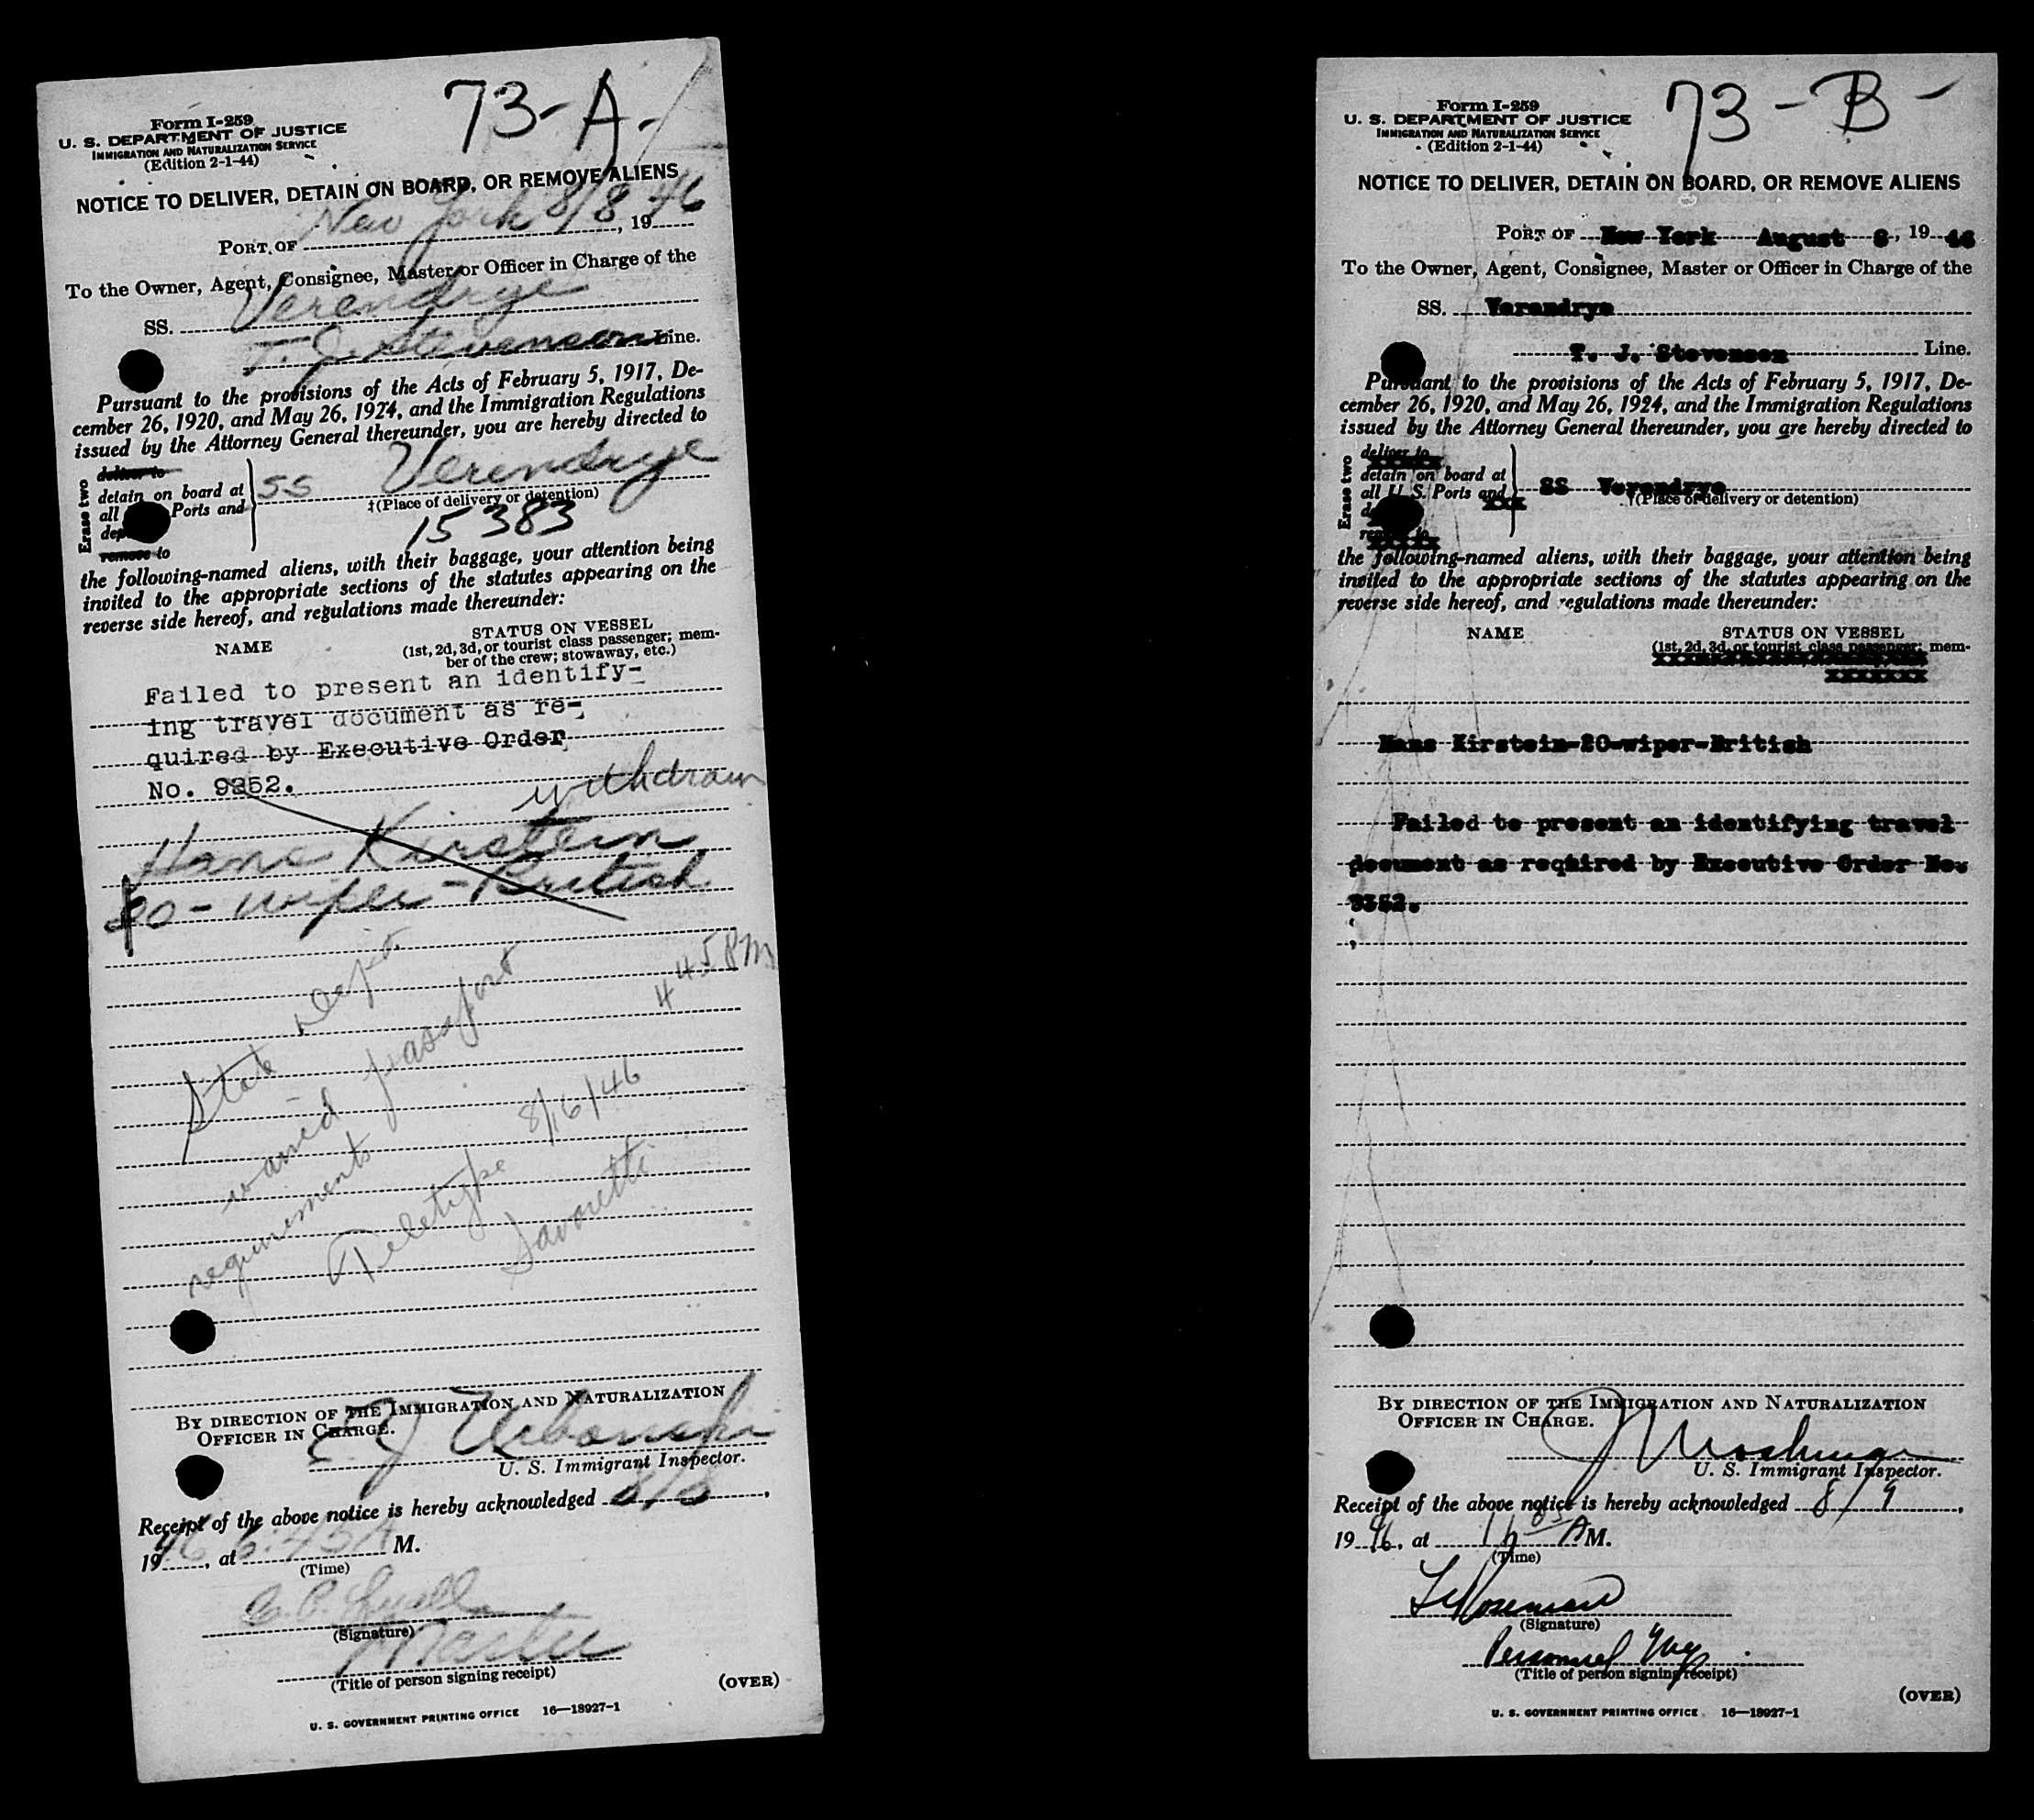 73-A-
Form I-259
U. S. DEPARTMENT OF JUSTICE
IMMIGRATION AND NATURALIZATION SERVICE
(Edition 2-1-44)
NOTICE TO DELIVER, DETAIN ON BOARD, OR REMOVE ALIENS
PORT OF New York 8/8, 19 46
To the Owner, Agent, Consignee, Master or Officer in Charge of the
SS. Verendrye
T. J. Stevenson Line.
Pursuant to the provisions of the Acts of February 5, 1917, De-
cember 26, 1920, and May 26, 1924, and the Immigration Regulations
issued by the Attorney General thereunder, you are hereby directed to
Erase two
deliver to
detain on board at
all Ports and
remove to
SS Verendrye
‡(Place of delivery or detention)
15383
the following-named aliens, with their baggage, your attention being
invited to the appropriate sections of the statutes appearing on the
reverse side hereof, and regulations made thereunder:
NAME
STATUS ON VESSEL
(1st, 2d, 3d, or tourist class passenger; mem-
ber of the crew; stowaway, etc.)
Failed to present an identify-
ing travel document as re-
quired by Executive Order
No. 9352.
withdrawn
Hans Kirstein
20-wiper-British
State Dept.
waived passport
requirements
4 45 PM
Teletype 8/16/46
Savoretti
BY DIRECTION OF THE IMMIGRATION AND NATURALIZATION
OFFICER IN CHARGE.
U. S. Immigrant Inspector.
Receipt of the above notice is hereby acknowledged 8/8,
19 46, at 6:45 A M.
(Time)
(Signature)
Master
(Title of person signing receipt)
(OVER)
U. S. GOVERNMENT PRINTING OFFICE 16—18927-1
73-B-
Form I-259
U. S. DEPARTMENT OF JUSTICE
IMMIGRATION AND NATURALIZATION SERVICE
(Edition 2-1-44)
NOTICE TO DELIVER, DETAIN ON BOARD, OR REMOVE ALIENS
PORT OF New York August 8, 19 46
To the Owner, Agent, Consignee, Master or Officer in Charge of the
SS. Verendrye
T. J. Stevenson Line.
Pursuant to the provisions of the Acts of February 5, 1917, De-
cember 26, 1920, and May 26, 1924, and the Immigration Regulations
issued by the Attorney General thereunder, you are hereby directed to
Erase two
deliver to
detain on board at
all U. S. Ports and
SS Verendrye
†(Place of delivery or detention)
the following-named aliens, with their baggage, your attention being
invited to the appropriate sections of the statutes appearing on the
reverse side hereof, and regulations made thereunder:
NAME
STATUS ON VESSEL
(1st, 2d, 3d, or tourist class passenger; mem-
Hans Kirstein-20-wiper-British
Failed to present an identifying travel
document as required by Executive Order No.
9352.
BY DIRECTION OF THE IMMIGRATION AND NATURALIZATION
OFFICER IN CHARGE.
U. S. Immigrant Inspector.
Receipt of the above notice is hereby acknowledged 8/9,
19 46, at AM.
(Time)
(Signature)
Personnel Mgr
(Title of person signing receipt)
(OVER)
U. S. GOVERNMENT PRINTING OFFICE 16—18927-1